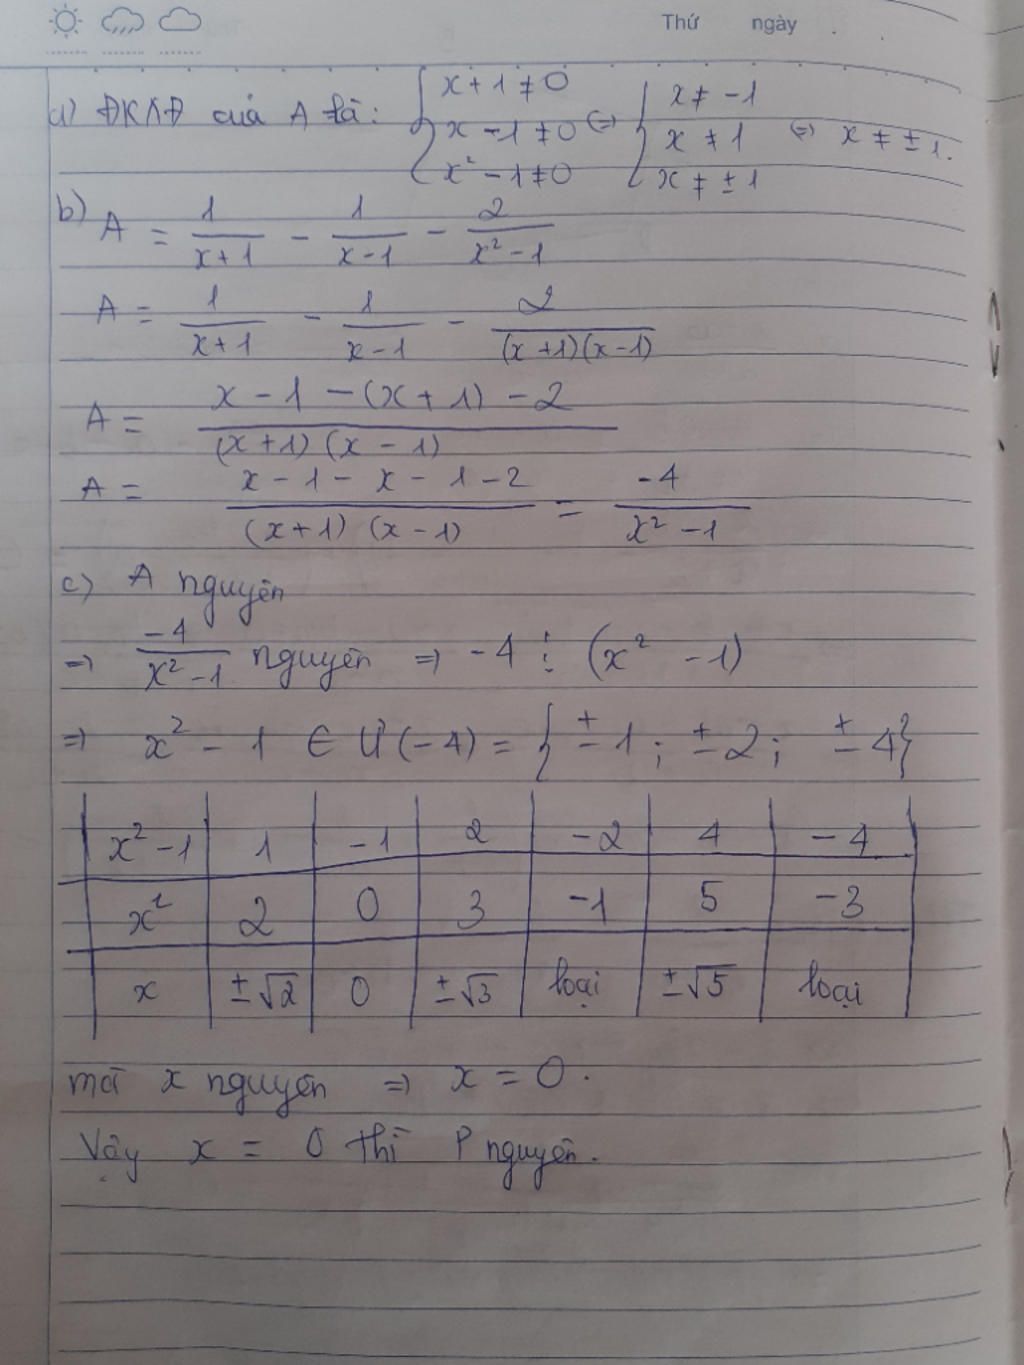 Thứ ngày
a) ĐKXĐ của A là: { x + 1 ≠ 0 ; x - 1 ≠ 0 ; x² - 1 ≠ 0 ⇔ { x ≠ -1 ; x ≠ 1 ; x ≠ ± 1 ⇔ x ≠ ± 1.
b) A = 1/(x+1) - 1/(x-1) - 2/(x² - 1)
A = 1/(x+1) - 1/(x-1) - 2/((x+1)(x-1))
A = (x - 1 - (x + 1) - 2)/((x+1)(x - 1))
A = (x - 1 - x - 1 - 2)/((x+1)(x - 1)) = -4/(x² - 1)
c) A nguyên
⇒ -4/(x² - 1) nguyên ⇒ -4 ⋮ (x² - 1)
⇒ x² - 1 ∈ Ư(-4) = { ± 1 ; ± 2 ; ± 4 }
x² - 1 1 -1 2 -2 4 -4
x² 2 0 3 -1 5 -3
x ±√2 0 ±√3 loại ±√5 loại
mà x nguyên ⇒ x = 0.
Vậy x = 0 thì P nguyên.